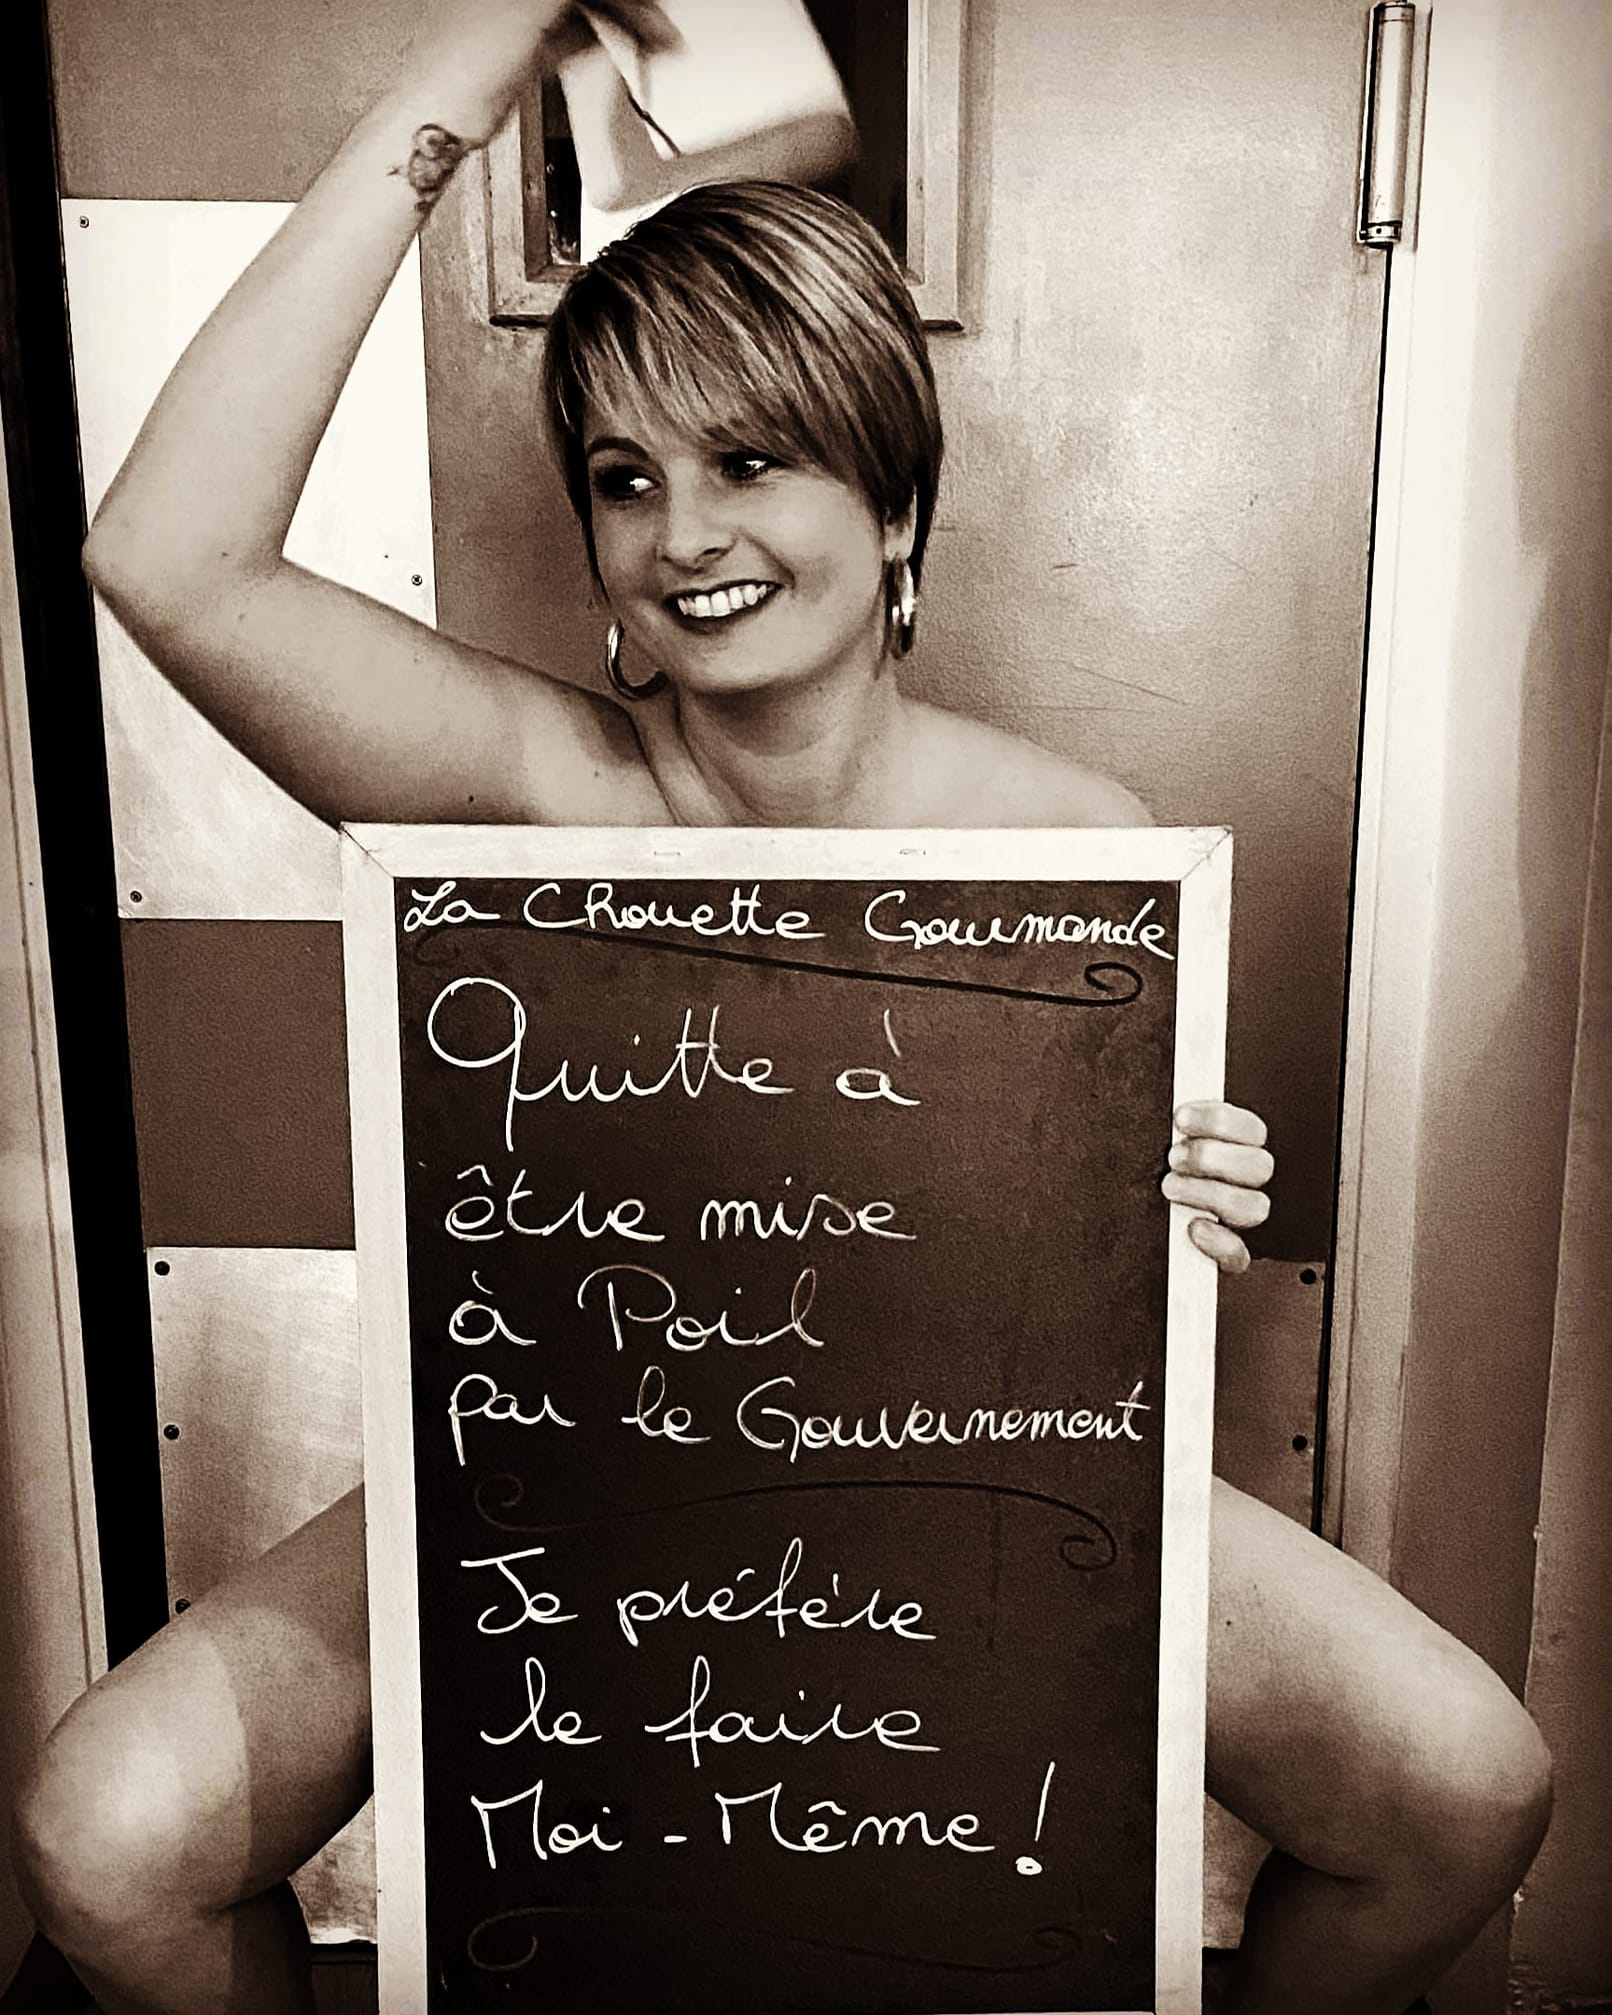 La Chouette Gourmande
Quitte à
être mise
à Poil
par le Gouvernement
Je préfère
le faire
Moi-Même !